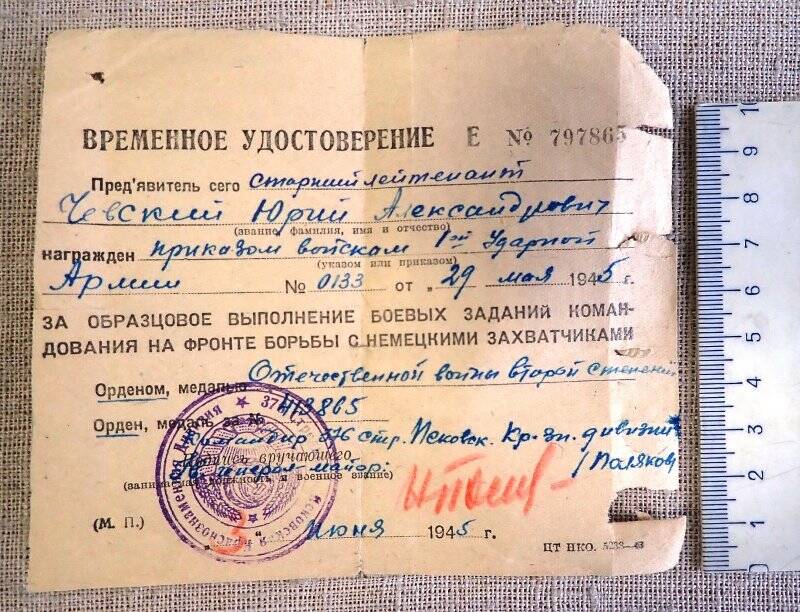 ВРЕМЕННОЕ УДОСТОВЕРЕНИЕ Е № 797865
Пред'явитель сего старший лейтенант
Чевский Юрий Александрович
(звание, фамилия, имя и отчество)
награжден приказом войскам 1ой Ударной
(указом или приказом)
Армии № 0133 от „29 мая 1945 г.
ЗА ОБРАЗЦОВОЕ ВЫПОЛНЕНИЕ БОЕВЫХ ЗАДАНИЙ КОМАН-
ДОВАНИЯ НА ФРОНТЕ БОРЬБЫ С НЕМЕЦКИМИ ЗАХВАТЧИКАМИ
Орденом, медалью Отечественной войны второй степени
Орден, медаль за № 413865
Командир 376 стр. Псковск. Кр-зн. дивизии
Подпись вручающего
генерал-майор: /Поляков
(занимаемая должность и военное звание)
(М. П.) июня 1945 г.
ЦТ НКО.
Псковская Краснознаменная дивизия 376
10
9
8
7
6
5
4
3
2
1
0